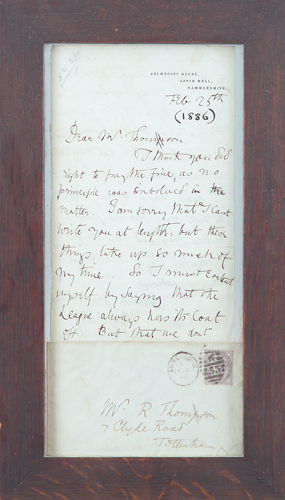 KELMSCOTT HOUSE,
UPPER MALL,
HAMMERSMITH.
Feb 25th
(1886)
Dear Mr Thompson
I think you did
right to pay the fine, as no
principle was involved in the
matter. I am sorry that I can't
write you at length, but these
things take up so much of
my time. So I must content
myself by saying that the
League always has its coat
off But that we don't
Mr R Thompson
7 Clyde Road
Tottenham